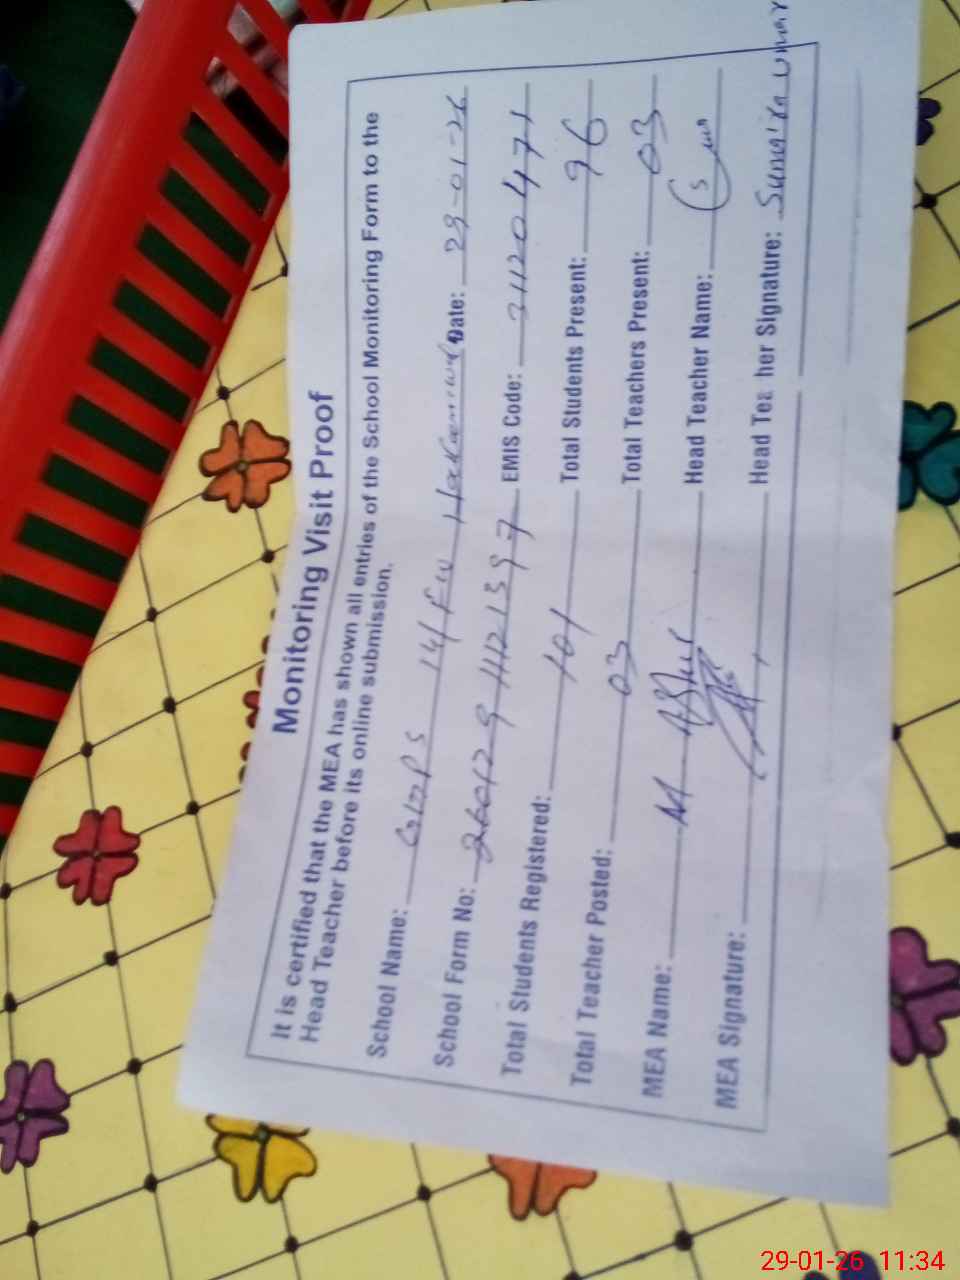 Monitoring Visit Proof
It is certified that the MEA has shown all entries of the School Monitoring Form to the
Head Teacher before its online submission.
School Name: GGPS 141 FW Date: 29-01-26
School Form No: EMIS Code: 31120471
Total Students Registered: 101 Total Students Present: 96
Total Teacher Posted: 03 Total Teachers Present: 03
MEA Name: M Head Teacher Name:
MEA Signature: Head Teacher Signature: Sumaira Umar
29-01-26 11:34